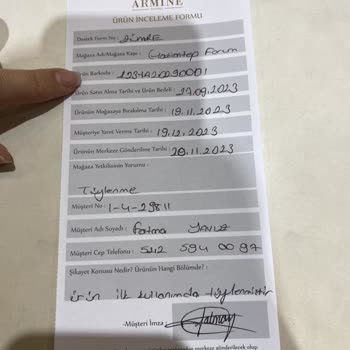 ARMİNE
ÜRÜN İNCELEME FORMU
Destek Form No :
Mağaza Adı/Mağaza Kaşe : Gaziantep Forum
Ürün Barkodu :
Ürün Satın Alma Tarihi ve Ürün Bedeli : 17.09.2023
Ürünün Mağazaya Bırakılma Tarihi : 19.11.2023
Müşteriye Yanıt Verme Tarihi : 19.12.2023
Ürünün Merkeze Gönderilme Tarihi : 20.11.2023
Mağaza Yetkilisinin Yorumu :
Tüylenme
Müşteri No : 1-4-29811
Müşteri Adı Soyadı : Fatma Yavuz
Müşteri Cep Telefonu : 542 594 00 97
Şikayet Konusu Nedir? Ürünün Hangi Bölümde? :
ürün ilk kullanımda tüylenmiştir
-Müşteri İmza
merkeze gönderilecek olup